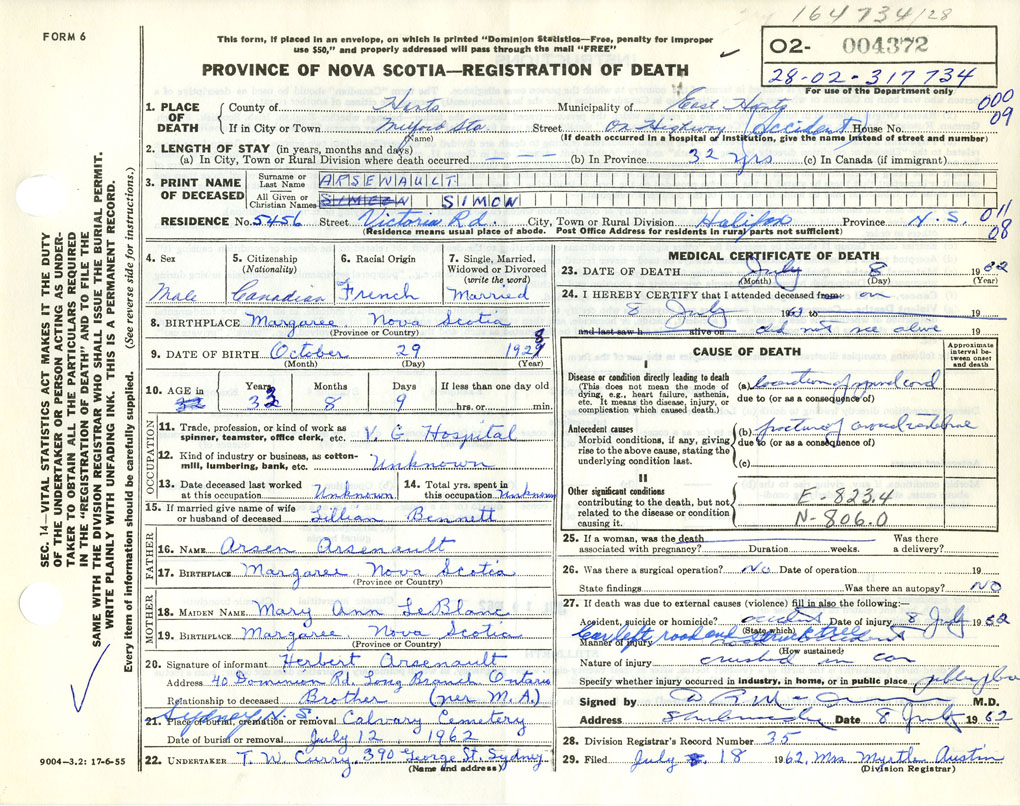 164734/28
FORM 6
This form, if placed in an envelope, on which is printed "Dominion Statistics—Free, penalty for improper
use $50," and properly addressed will pass through the mail "FREE"
02- 004372
28-02-317734
For use of the Department only
PROVINCE OF NOVA SCOTIA—REGISTRATION OF DEATH
000
09
1. PLACE OF DEATH
County of Hants Municipality of East Hants
If in City or Town Milford Sta Street On Highway (Accident) House No.
(Name) (If death occurred in a hospital or institution, give the name instead of street and number)
2. LENGTH OF STAY (in years, months and days)
(a) In City, Town or Rural Division where death occurred — — — (b) In Province 32 yrs (c) In Canada (if immigrant)
3. PRINT NAME OF DECEASED
Surname or Last Name ARSENAULT
All Given or Christian Names SIMEON SIMON
011
08
RESIDENCE No. 5456 Street Victoria Rd. City, Town or Rural Division Halifax Province N.S.
(Residence means usual place of abode. Post Office Address for residents in rural parts not sufficient)
SEC. 14—VITAL STATISTICS ACT MAKES IT THE DUTY
OF THE UNDERTAKER OR PERSON ACTING AS UNDER-
TAKER TO OBTAIN ALL THE PARTICULARS REQUIRED
IN THE "REGISTRATION OF DEATH" AND TO FILE THE
SAME WITH THE DIVISION REGISTRAR WHO SHALL ISSUE THE BURIAL PERMIT.
WRITE PLAINLY WITH UNFADING INK. THIS IS A PERMANENT RECORD.
Every item of information should be carefully supplied. (See reverse side for instructions.)
4. Sex 5. Citizenship (Nationality) 6. Racial Origin 7. Single, Married, Widowed or Divorced (write the word)
Male Canadian French Married
8. BIRTHPLACE Margaree Nova Scotia
(Province or Country)
9. DATE OF BIRTH October 29 1928
(Month) (Day) (Year)
10. AGE in Years Months Days If less than one day old
32 33 8 9 hrs. or min.
OCCUPATION
11. Trade, profession, or kind of work as
spinner, teamster, office clerk, etc. V. G. Hospital
12. Kind of industry or business, as cotton-
mill, lumbering, bank, etc. Unknown
13. Date deceased last worked
at this occupation Unknown
14. Total yrs. spent in
this occupation Unknown
15. If married give name of wife
or husband of deceased Lillian Bennett
FATHER
16. NAME Arsen Arsenault
17. BIRTHPLACE Margaree Nova Scotia
(Province or Country)
MOTHER
18. MAIDEN NAME Mary Ann LeBlanc
19. BIRTHPLACE Margaree Nova Scotia
(Province or Country)
20. Signature of informant Herbert Arsenault
Address 40 Dominion Rd. Long Branch Ontario
Relationship to deceased Brother (per M.A.)
Sydney N. S.
21. Place of burial, cremation or removal Calvary Cemetery
Date of burial or removal July 12, 1962
22. UNDERTAKER T. W. Curry, 390 George St. Sydney
(Name and address)
9004-3.2: 17-6-55
MEDICAL CERTIFICATE OF DEATH
23. DATE OF DEATH July 8 1962
(Month) (Day) (Year)
24. I HEREBY CERTIFY that I attended deceased from: on
8 July 19 to 19
and last saw h alive on did not see alive 19
CAUSE OF DEATH
Approximate interval between onset and death
I
Disease or condition directly leading to death
(This does not mean the mode of
dying, e.g., heart failure, asthenia,
etc. It means the disease, injury, or
complication which caused death.)
(a) of cord
due to (or as a consequence of)
Antecedent causes
Morbid conditions, if any, giving
rise to the above cause, stating the
underlying condition last.
(b) fracture of
due to (or as a consequence of)
(c)
II
Other significant conditions
contributing to the death, but not
related to the disease or condition
causing it.
E-823.4
N-806.0
25. If a woman, was the death
associated with pregnancy? Duration weeks. Was there
a delivery?
26. Was there a surgical operation? No Date of operation 19
State findings Was there an autopsy? No
27. If death was due to external causes (violence) fill in also the following:—
Accident, suicide or homicide? accident Date of injury 8 July 1962
(State which)
Manner of injury Car left road and
(How sustained)
Nature of injury crushed in car
Specify whether injury occurred in industry, in home, or in public place
Signed by M.D.
Address Date 8 July 1962
28. Division Registrar's Record Number 35
29. Filed July 18 1962, Mrs Myrtle Austin
(Division Registrar)